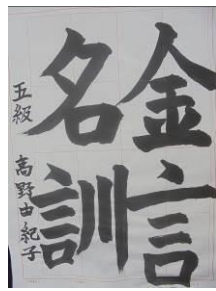 金言
名訓
五級 高野由紀子